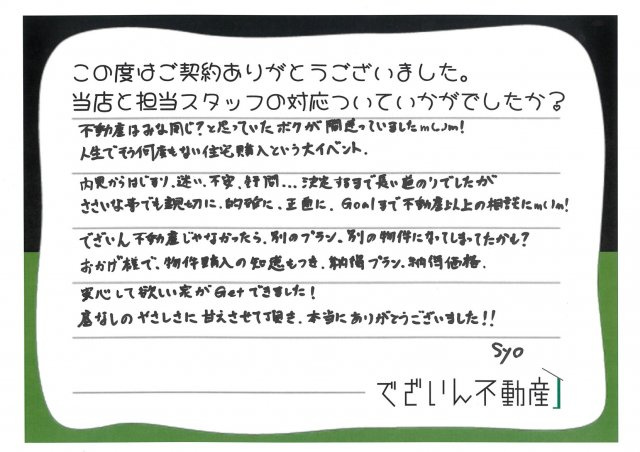 この度はご契約ありがとうございました。
当店と担当スタッフの対応ついていかがでしたか?
不動産はみな同じ?と思っていたボクが間違っていましたm(_)m!
人生でそう何度もない住宅購入という大イベント.
内見からはじまり、迷い、不安、疑問...決定するまで長い道のりでしたが
ささいな事でも親切に、的確に、正直に、Goalまで不動産以上の相談にm(_)m!
でざいん不動産じゃなかったら、別のプラン、別の物件になってしまってたかも?
おかげ様で、物件購入の知恵もつき、納得プラン、納得価格.
安心して欲しい家がGetできました!
底なしのやさしさに甘えさせて頂き、本当にありがとうございました!!
Syo
でざいん不動産